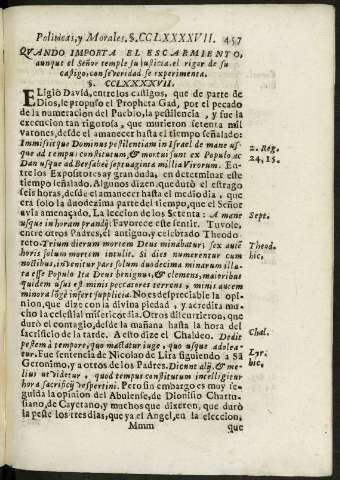 Politicas, y Morales. §. CCLXXXXVII. 457
QVANDO IMPORTA EL ESCARMIENTO,
aunque el Señor temple su Iusticia. el rigor de su
castigo, con severidad se experimenta.
§. CCLXXXXVII.
ELigiò David, entre los castigos, que de parte de
Dios, le propuso el Propheta Gad, por el pecado
de la numeracion del Pueblo, la pestilencia, y fue la
execucion tan rigorosa, que murieron setenta mil
varones, desde el amanecer hasta el tiempo señalado:
Immisitque Dominus pestilentiam in Israel de mane us-
que ad tempus constitutum, & mortui sunt ex Populo ac
2. Reg.
Dan usque ad Bersabeè septuaginta millia Virorum. En-
24, 15.
tre los Expositores ay gran duda, en determinar este
tiempo señalado. Algunos dizen, que durò el estrago
seis horas, desde el amanecer hasta el medio dia, que
era solo la duodezima parte del tiempo, que el Señor
avia amenaçado. La leccion de los Setenta: A mane
Sept.
usque in horam prandij: Favorece este sentir. Tuvole,
entre otros Padres, el antiguo, y celebrado Theodo-
reto. Trium dierum mortem Deus minabatur; sex autē
Theod.
horis solum mortem intulit. Si dies numerentur cum
hic,
noctibus, invenitur pars solum duodecima minarum illa-
ta esse Populo Ita Deus benignus, & clemens, maioribus
quidem usus est minis peccatores terrens, minis autem
minora longè infert suplicia. No es despreciable la opi-
nion, que dize con la divina piedad, y acredita mu-
cho la celestial misericordia. Otros discurrieron, que
durò el contagio, desde la mañana hasta la hora del
sacrificio de la tarde. A esto dize el Chaldeo. Dedit
Chal.
pestem à tempore, quo mactatur iuge, quo usque adolea-
tur. Fue sentencia de Nicolao de Lira siguiendo a Sā
Lyr.
Geronimo, y a otros de los Padres. Dicunt alij, & me-
hic,
lius ut videtur, quod tempus constitutum intelligitur
hora sacrificij vespertini. Pero sin embargo es muy se-
guida la opinion del Abulense, de Dionisio Chartu-
siano, de Cayetano, y muchos que dizeron, que durò
la peste los tres dias, que ya el Angel, en la eleccion,
Mmm que